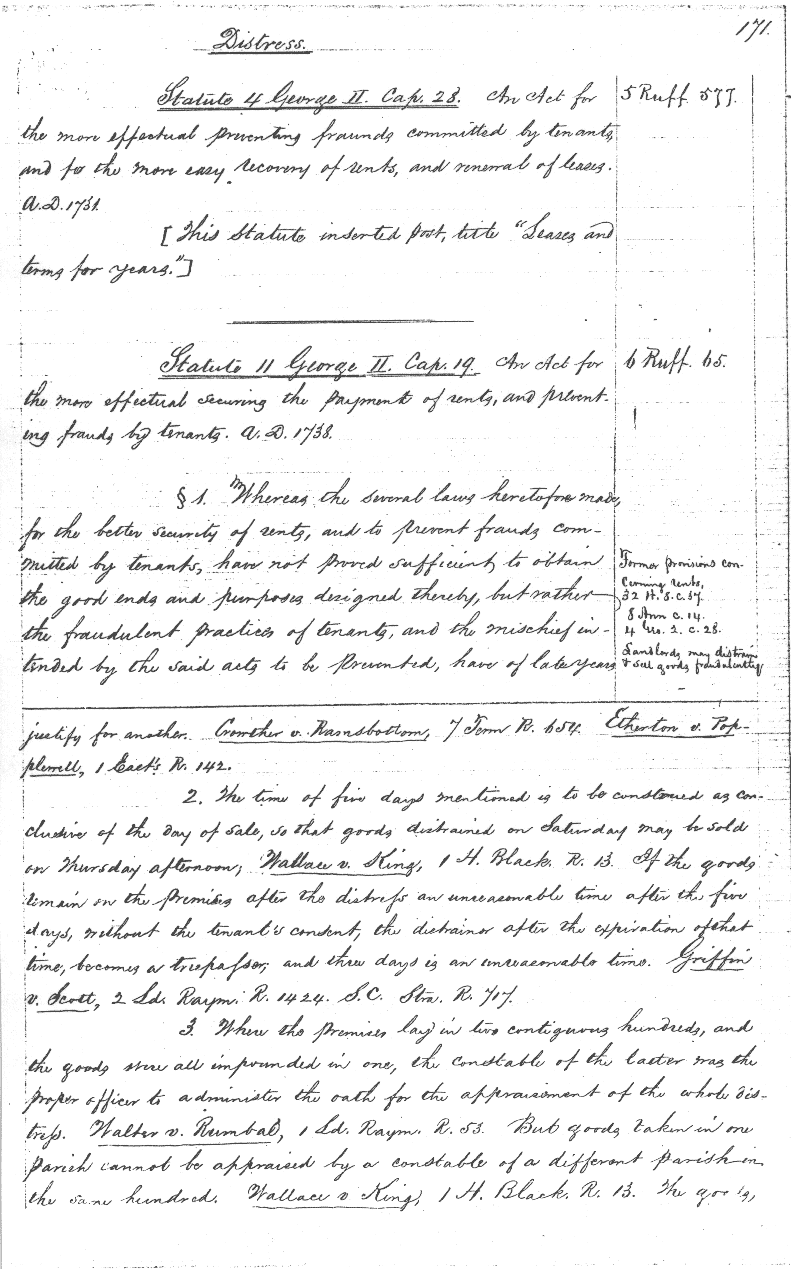 171.
Distress.
Statute 4 George II. Cap. 28. An Act for
5 Ruff. 577.
the more effectual preventing frauds committed by tenants,
and for the more easy recovery of rents, and renewal of leases.
A.D. 1731.
[This statute inserted post, title "Leases and
terms for years."]
Statute 11 George II. Cap. 19. An Act for
6 Ruff. 65.
the more effectual securing the payment of rents, and prevent-
ing frauds by tenants. A.D. 1738.
§ 1. "Whereas the several laws heretofore made,
for the better security of rents, and to prevent frauds com-
mitted by tenants, have not proved sufficient to obtain
the good ends and purposes designed thereby, but rather
the fraudulent practices of tenants, and the mischief in-
tended by the said acts to be prevented, have of late years
Former provisions con-
cerning rents,
32 H. 8. c. 37.
8 Ann c. 14.
4 Geo. 2. c. 28.
Landlords may distrain
& sell goods fraudulently
justify for another. Crowther v. Ramsbottom, 7 Term R. 654. Etherton v. Pop-
plewell, 1 East's R. 142.
2. The time of five days mentioned is to be construed as con-
clusive of the day of sale, so that goods distrained on Saturday may be sold
on Thursday afternoon; Wallace v. King, 1 H. Black. R. 13. If the goods
remain on the premises after the distress an unreasonable time after the five
days, without the tenant's consent, the distrainor after the expiration of that
time, becomes a trespasser, and three days is an unreasonable time. Griffin
v. Scott, 2 Ld. Raym. R. 1424. S.C. Stra. R. 717.
3. Where the premises lay in two contiguous hundreds, and
the goods were all impounded in one, the constable of the latter was the
proper officer to administer the oath for the appraisement of the whole dis-
tress. Walter v. Rumbal, 1 Ld. Raym. R. 53. But goods taken in one
parish cannot be appraised by a constable of a different parish in
the same hundred. Wallace v King, 1 H. Black. R. 13. The goods,